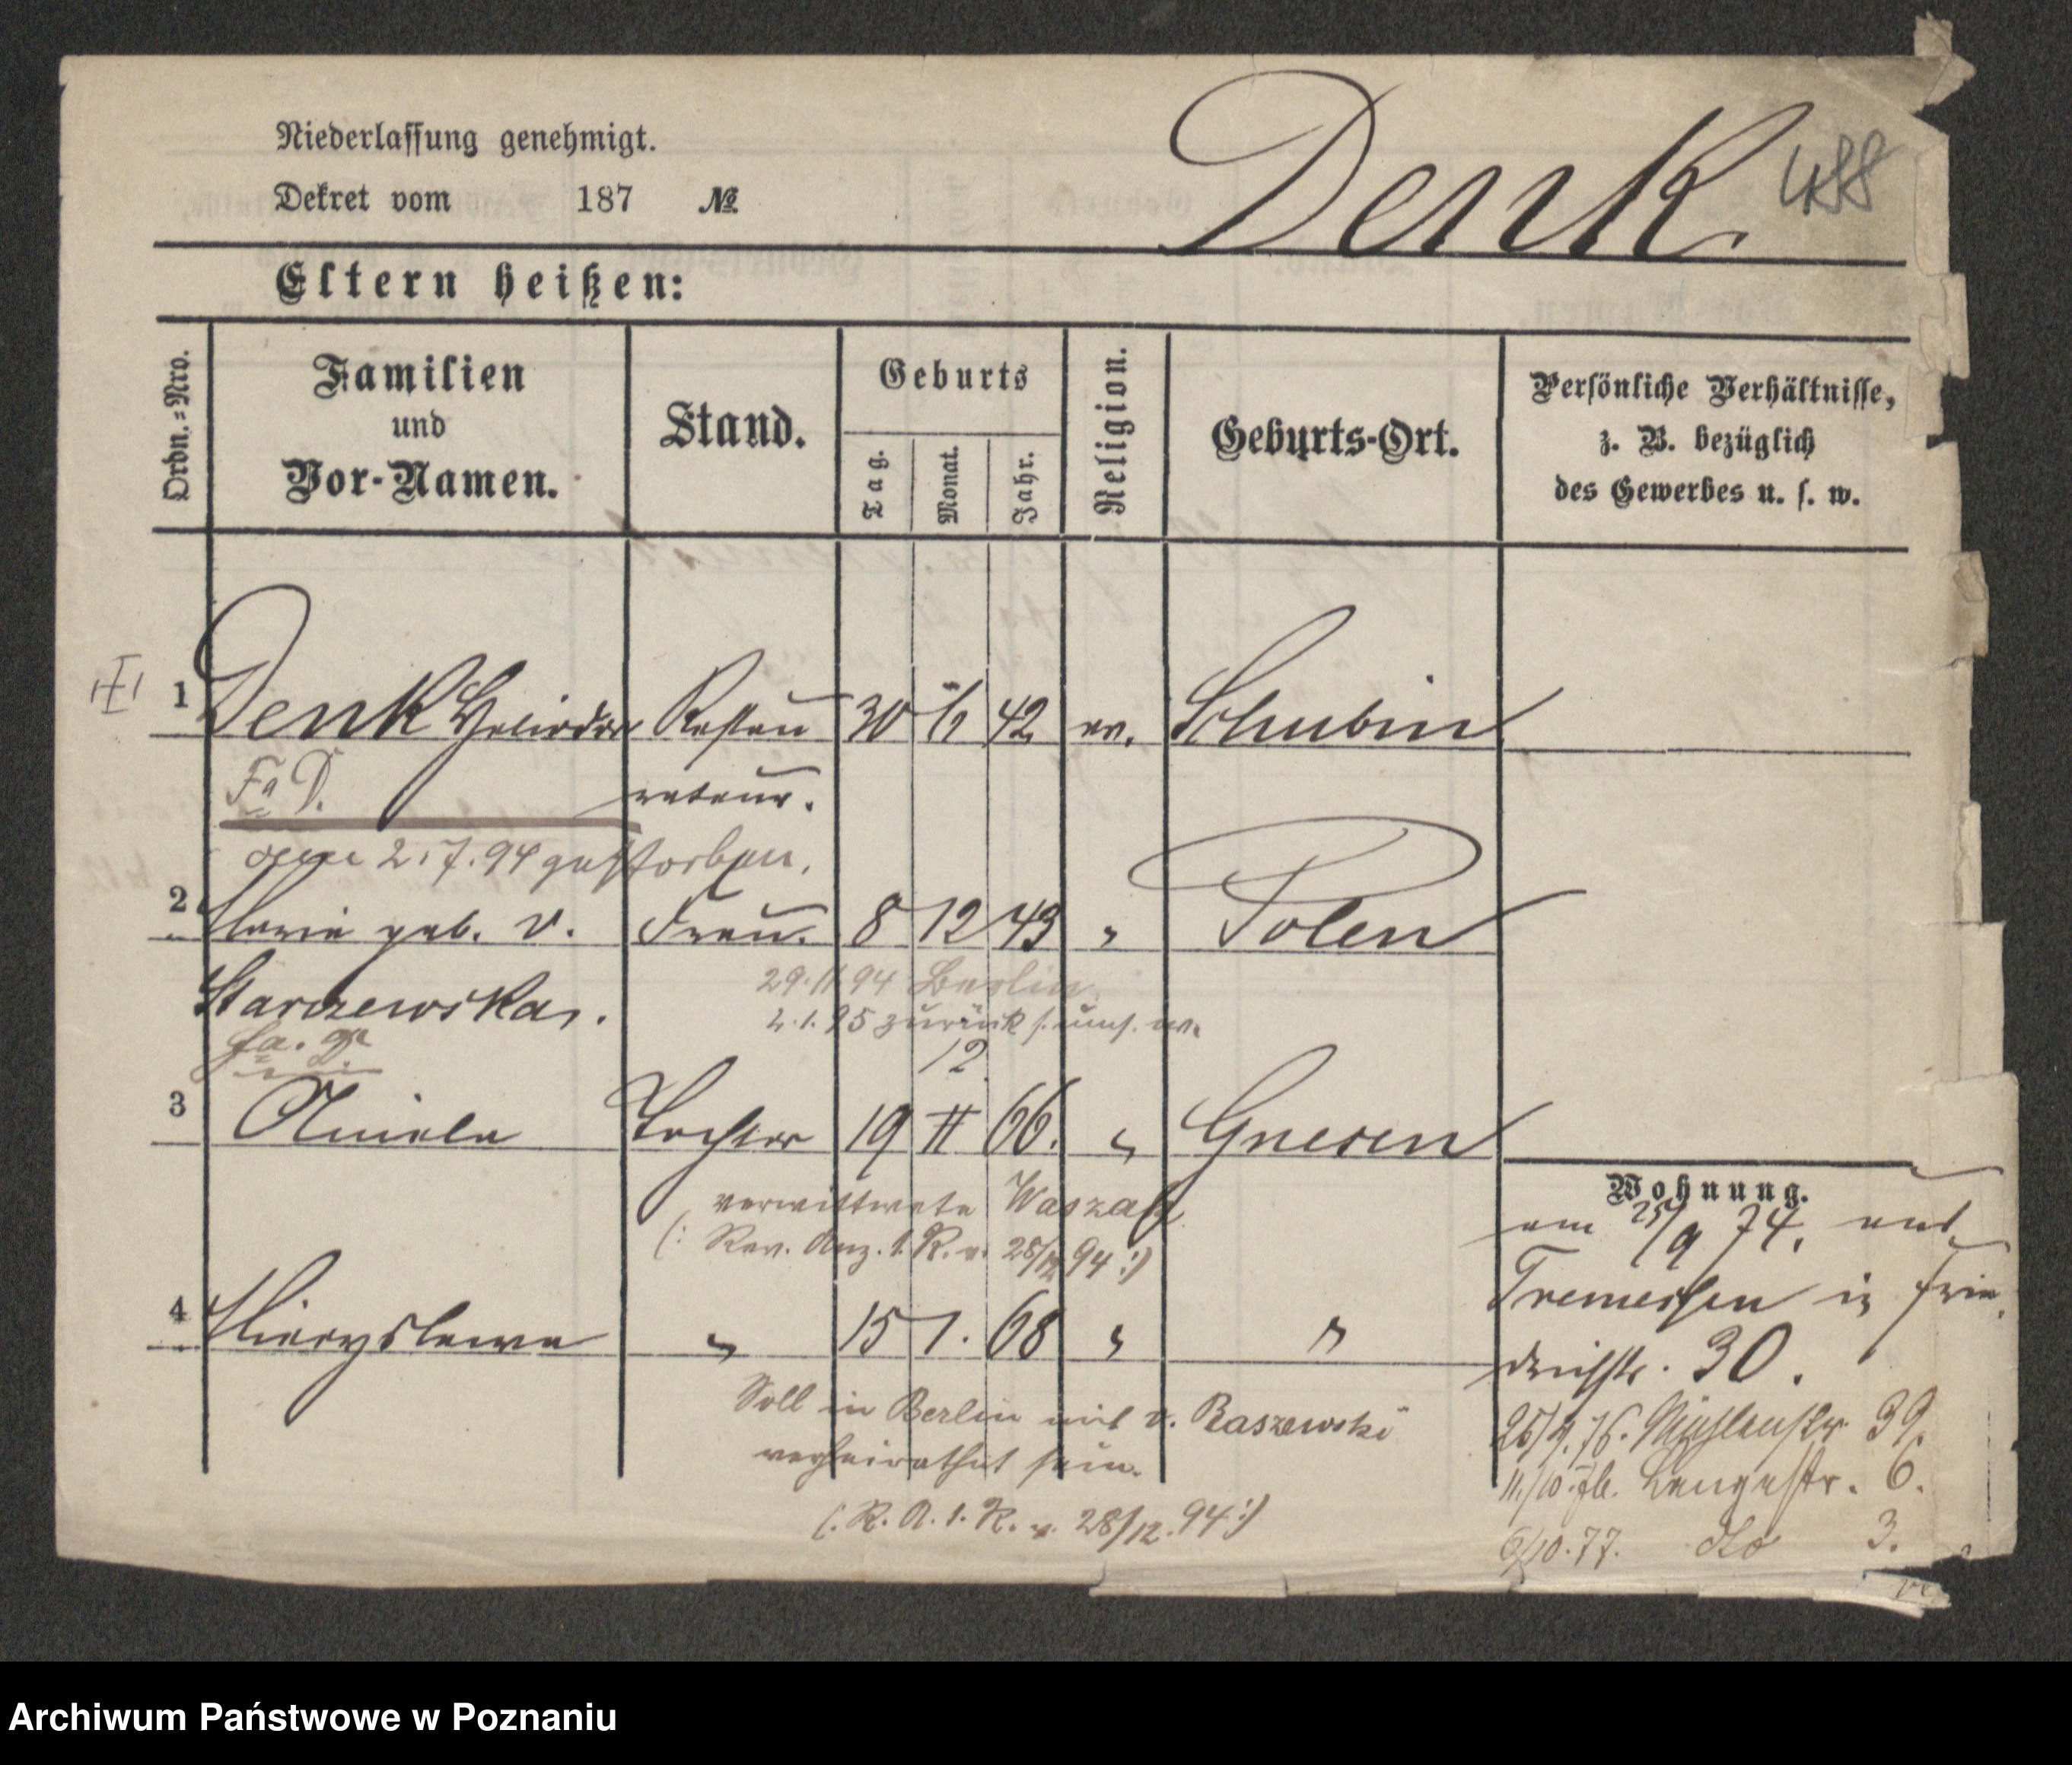 Niederlassung genehmigt.
Dekret vom 187 №
Denk
488
Eltern heißen:
Ordn.-Nro.
Familien
und
Vor-Namen.
Stand.
Geburts
Tag.
Monat.
Jahr.
Religion.
Geburts-Ort.
Persönliche Verhältnisse,
z. B. bezüglich
des Gewerbes u. s. w.
1 Denk Heliodor Restau 30 42 ev. Schubin
Fa D. rateur.
2.7.94 gestorben.
2 Marie geb. v. Frau. 8 12 43 " Polen
Starzewska.
29.11 94 Berlin
2.1.95 zurück
12
fa. D.
3 Aniela Tochter 19 II 66. " Gnesen
verwittwete Waszak
(: Rev. Anz. 1. R. v. 28/12 94 :)
4 Mieczyslawa " 15 1. 68 " "
Soll in Berlin mit v. Raszewski
verheirathet sein.
(: R. A. 1. R. v. 28/12. 94 :)
Wohnung.
am 25/9 74. aus
Tremessen in Frie
drichstr. 30.
26/4. 76. Mühlenstr. 39.
11./10. 76. Langestr. 6.
6/10. 77. dto 3.
Archiwum Państwowe w Poznaniu